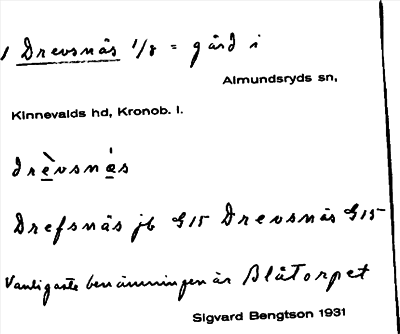 1 Drevsnäs 1/8 = gård i
Almundsryds sn,
Kinnevalds hd, Kronob. l.
drèvsnás
Drefsnäs jb G15 Drevsnäs G15
Vanligaste benämningen är Blåtorpet
Sigvard Bengtson 1931